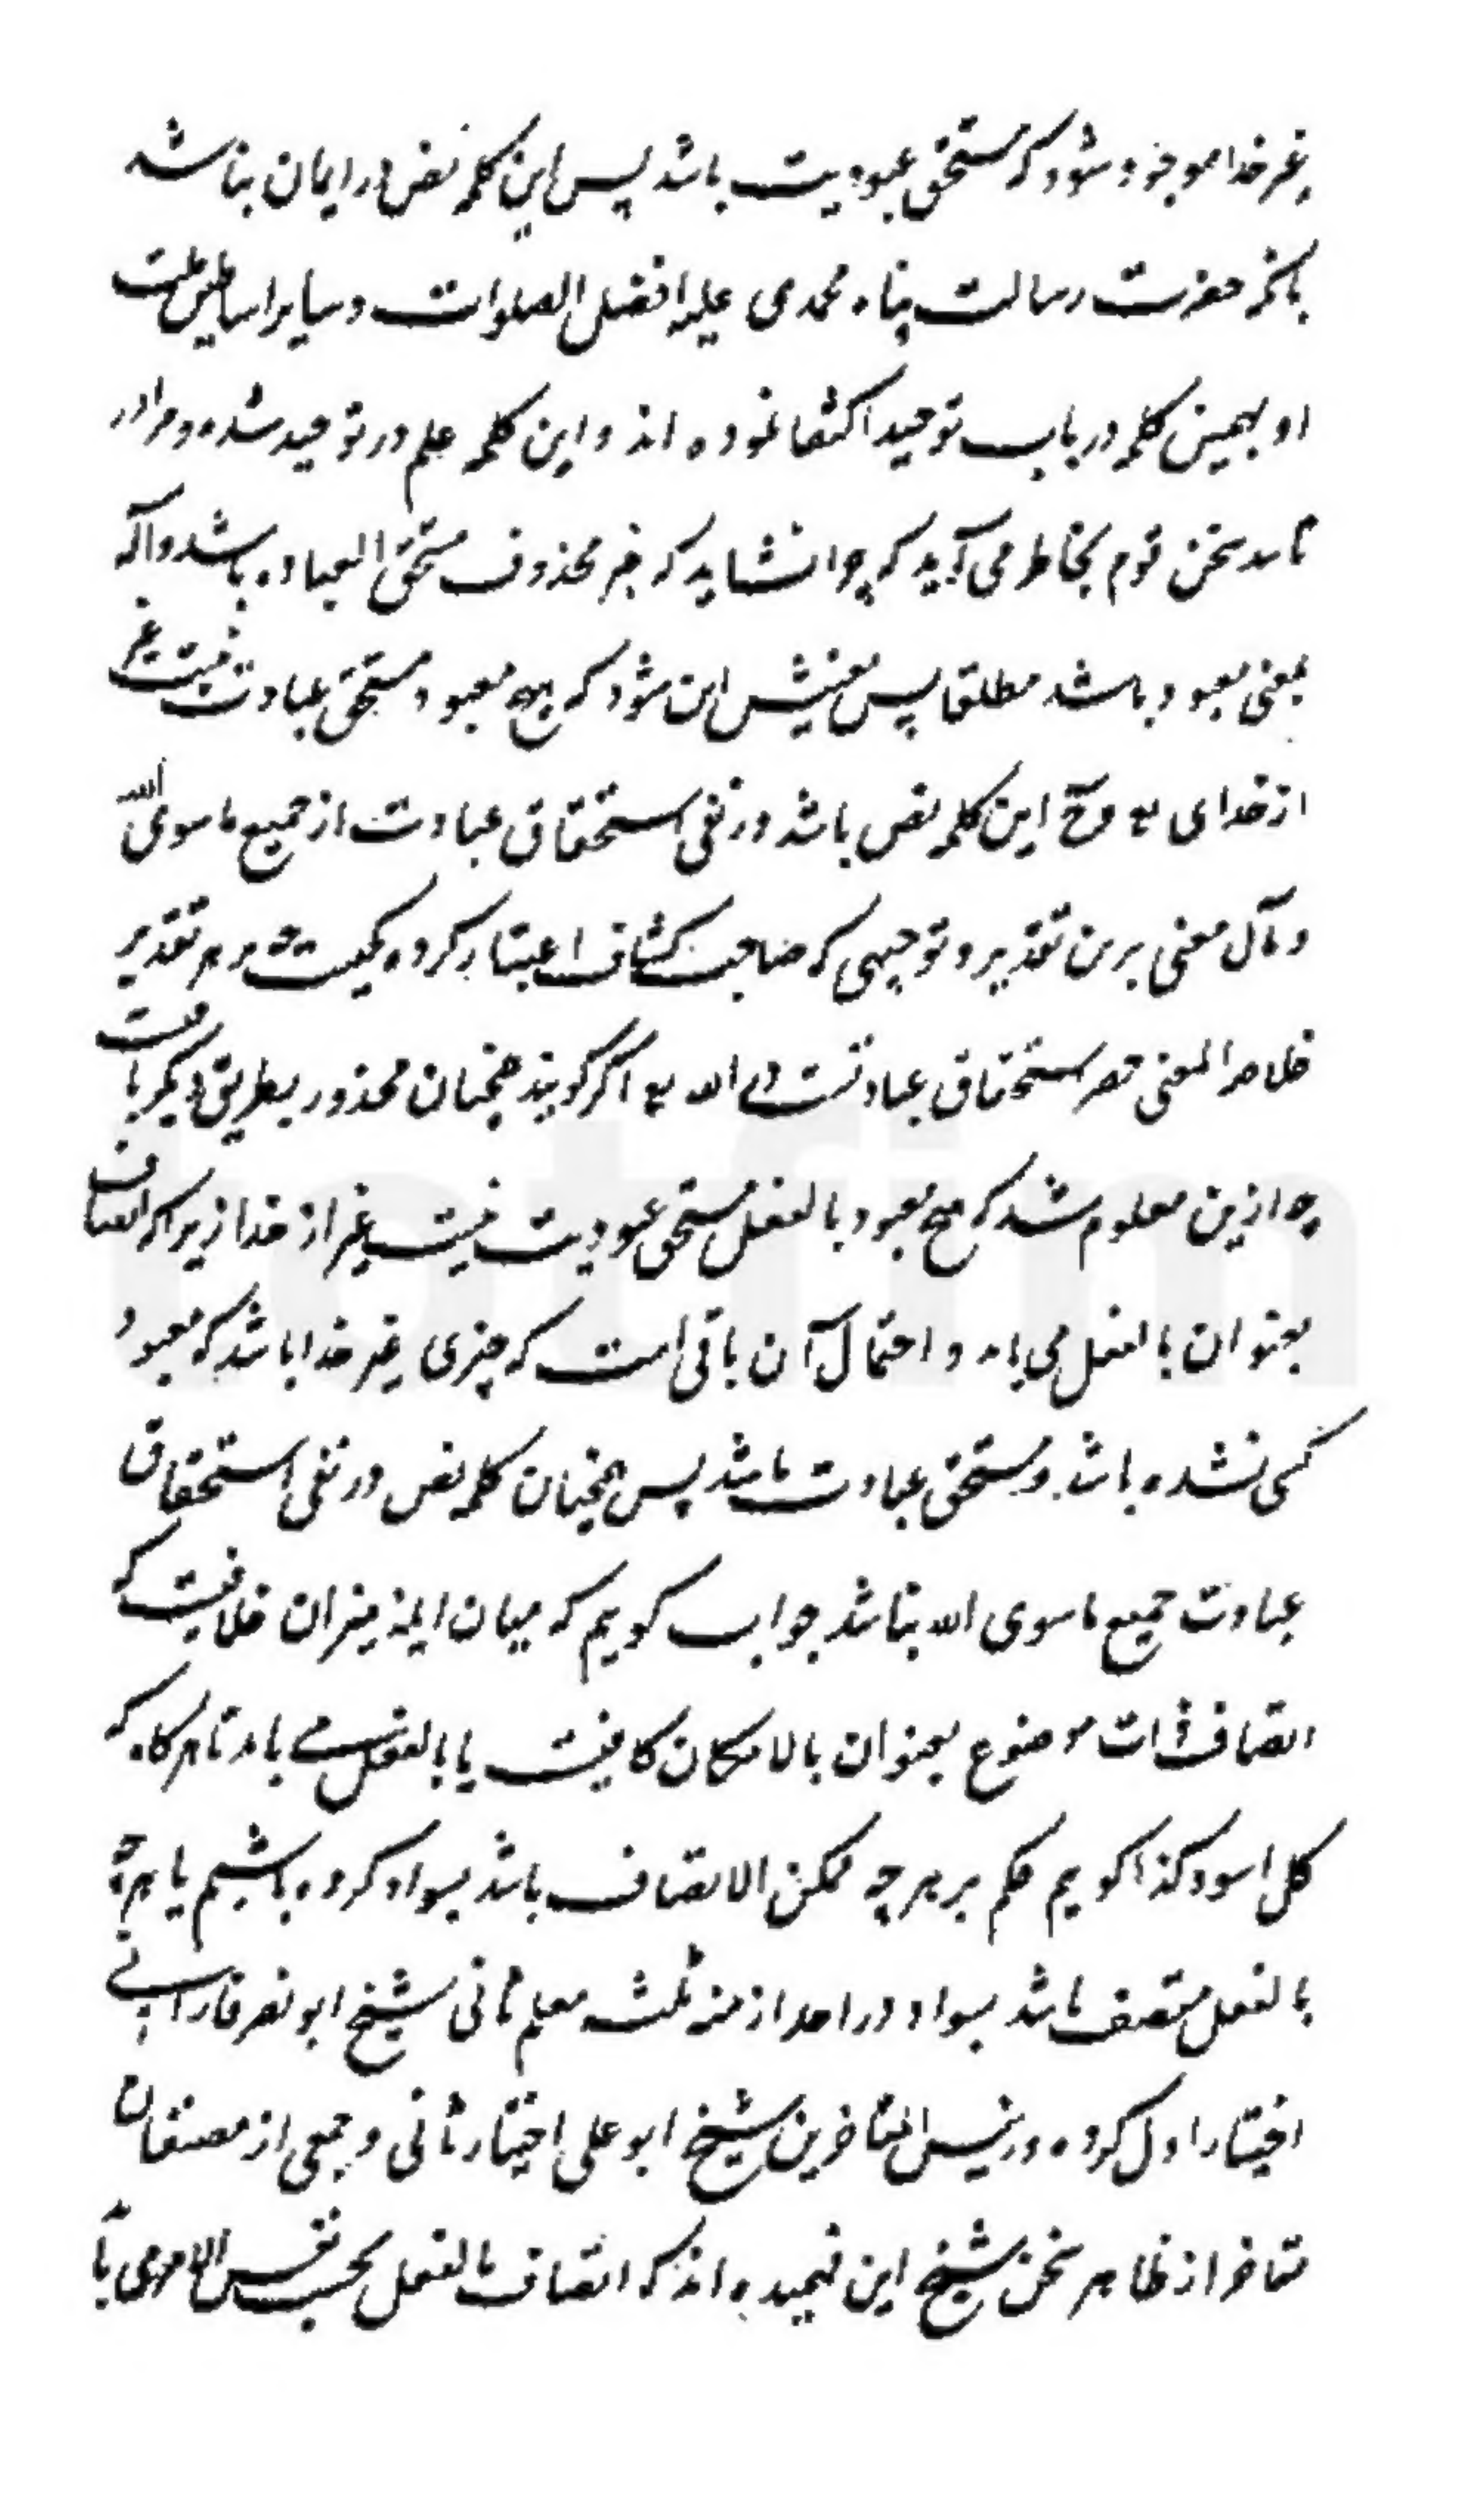 غیر خدا موجود شود که مستحق عبودیت باشد پس این کلمه نص در ایمان نباشد
بآنکه حضرت رسالت پناه محمدی علیه افضل الصلوات و سایر اساطین ملت
او بهمین کلمه در باب توحید اکتفا نموده اند و این کلمه علم در توحید شده و مرا در
تایید سخن قوم بخاطر می آید که چرا نشاید که خبر محذوف مستحق العباده باشد و اله
بمعنی معبود باشد مطلقا پس معنیش این شود که هیچ معبود مستحق عبادت نیست غیر
از خدای تع وح این کلمه نص باشد در نفی استحقاق عبادت از جمیع ماسوی الله
و مآل معنی برین تقدیر و توجیهی که صاحب کشاف اعتبار کرده یکیست چه بر هر تقدیر
خلاصه المعنی حصر استحقاق عبادتست در الله تع اگر گویند همچنان محذور بطریق دیگر باقیست
چه ازین معلوم شد که هیچ معبود بالفعل مستحق عبودیت نیست غیر از خدا زیرا که اتصاف
بعنوان بالفعل می باید و احتمال آن باقی است که چیزی غیر خدا باشد که معبود
کسی نشده باشد و مستحق عبادت باشد پس همچنان کلمه نص در نفی استحقاق
عبادت جمیع ماسوی الله نباشد جواب گویم که میان ایمه میزان خلافیست که
اتصاف ذات موضوع بعنوان بالامکان کافیست یا بالفعل می باید تا هرگاه که
کل اسود کذا گویم حکم بر هر چه ممکن الاتصاف باشد بسواد کرده باشیم یا هر چه
بالفعل متصف باشد بسواد در احد ازمنه ثلثه معلم ثانی شیخ ابو نصر فارابی
اختیار اول کرده و رئیس المتاخرین شیخ ابو علی اختیار ثانی و جمعی از مصنفان
متاخر از ظاهر سخن شیخ این فهمیده اند که اتصاف بالفعل بحسب نفس الامر می باید